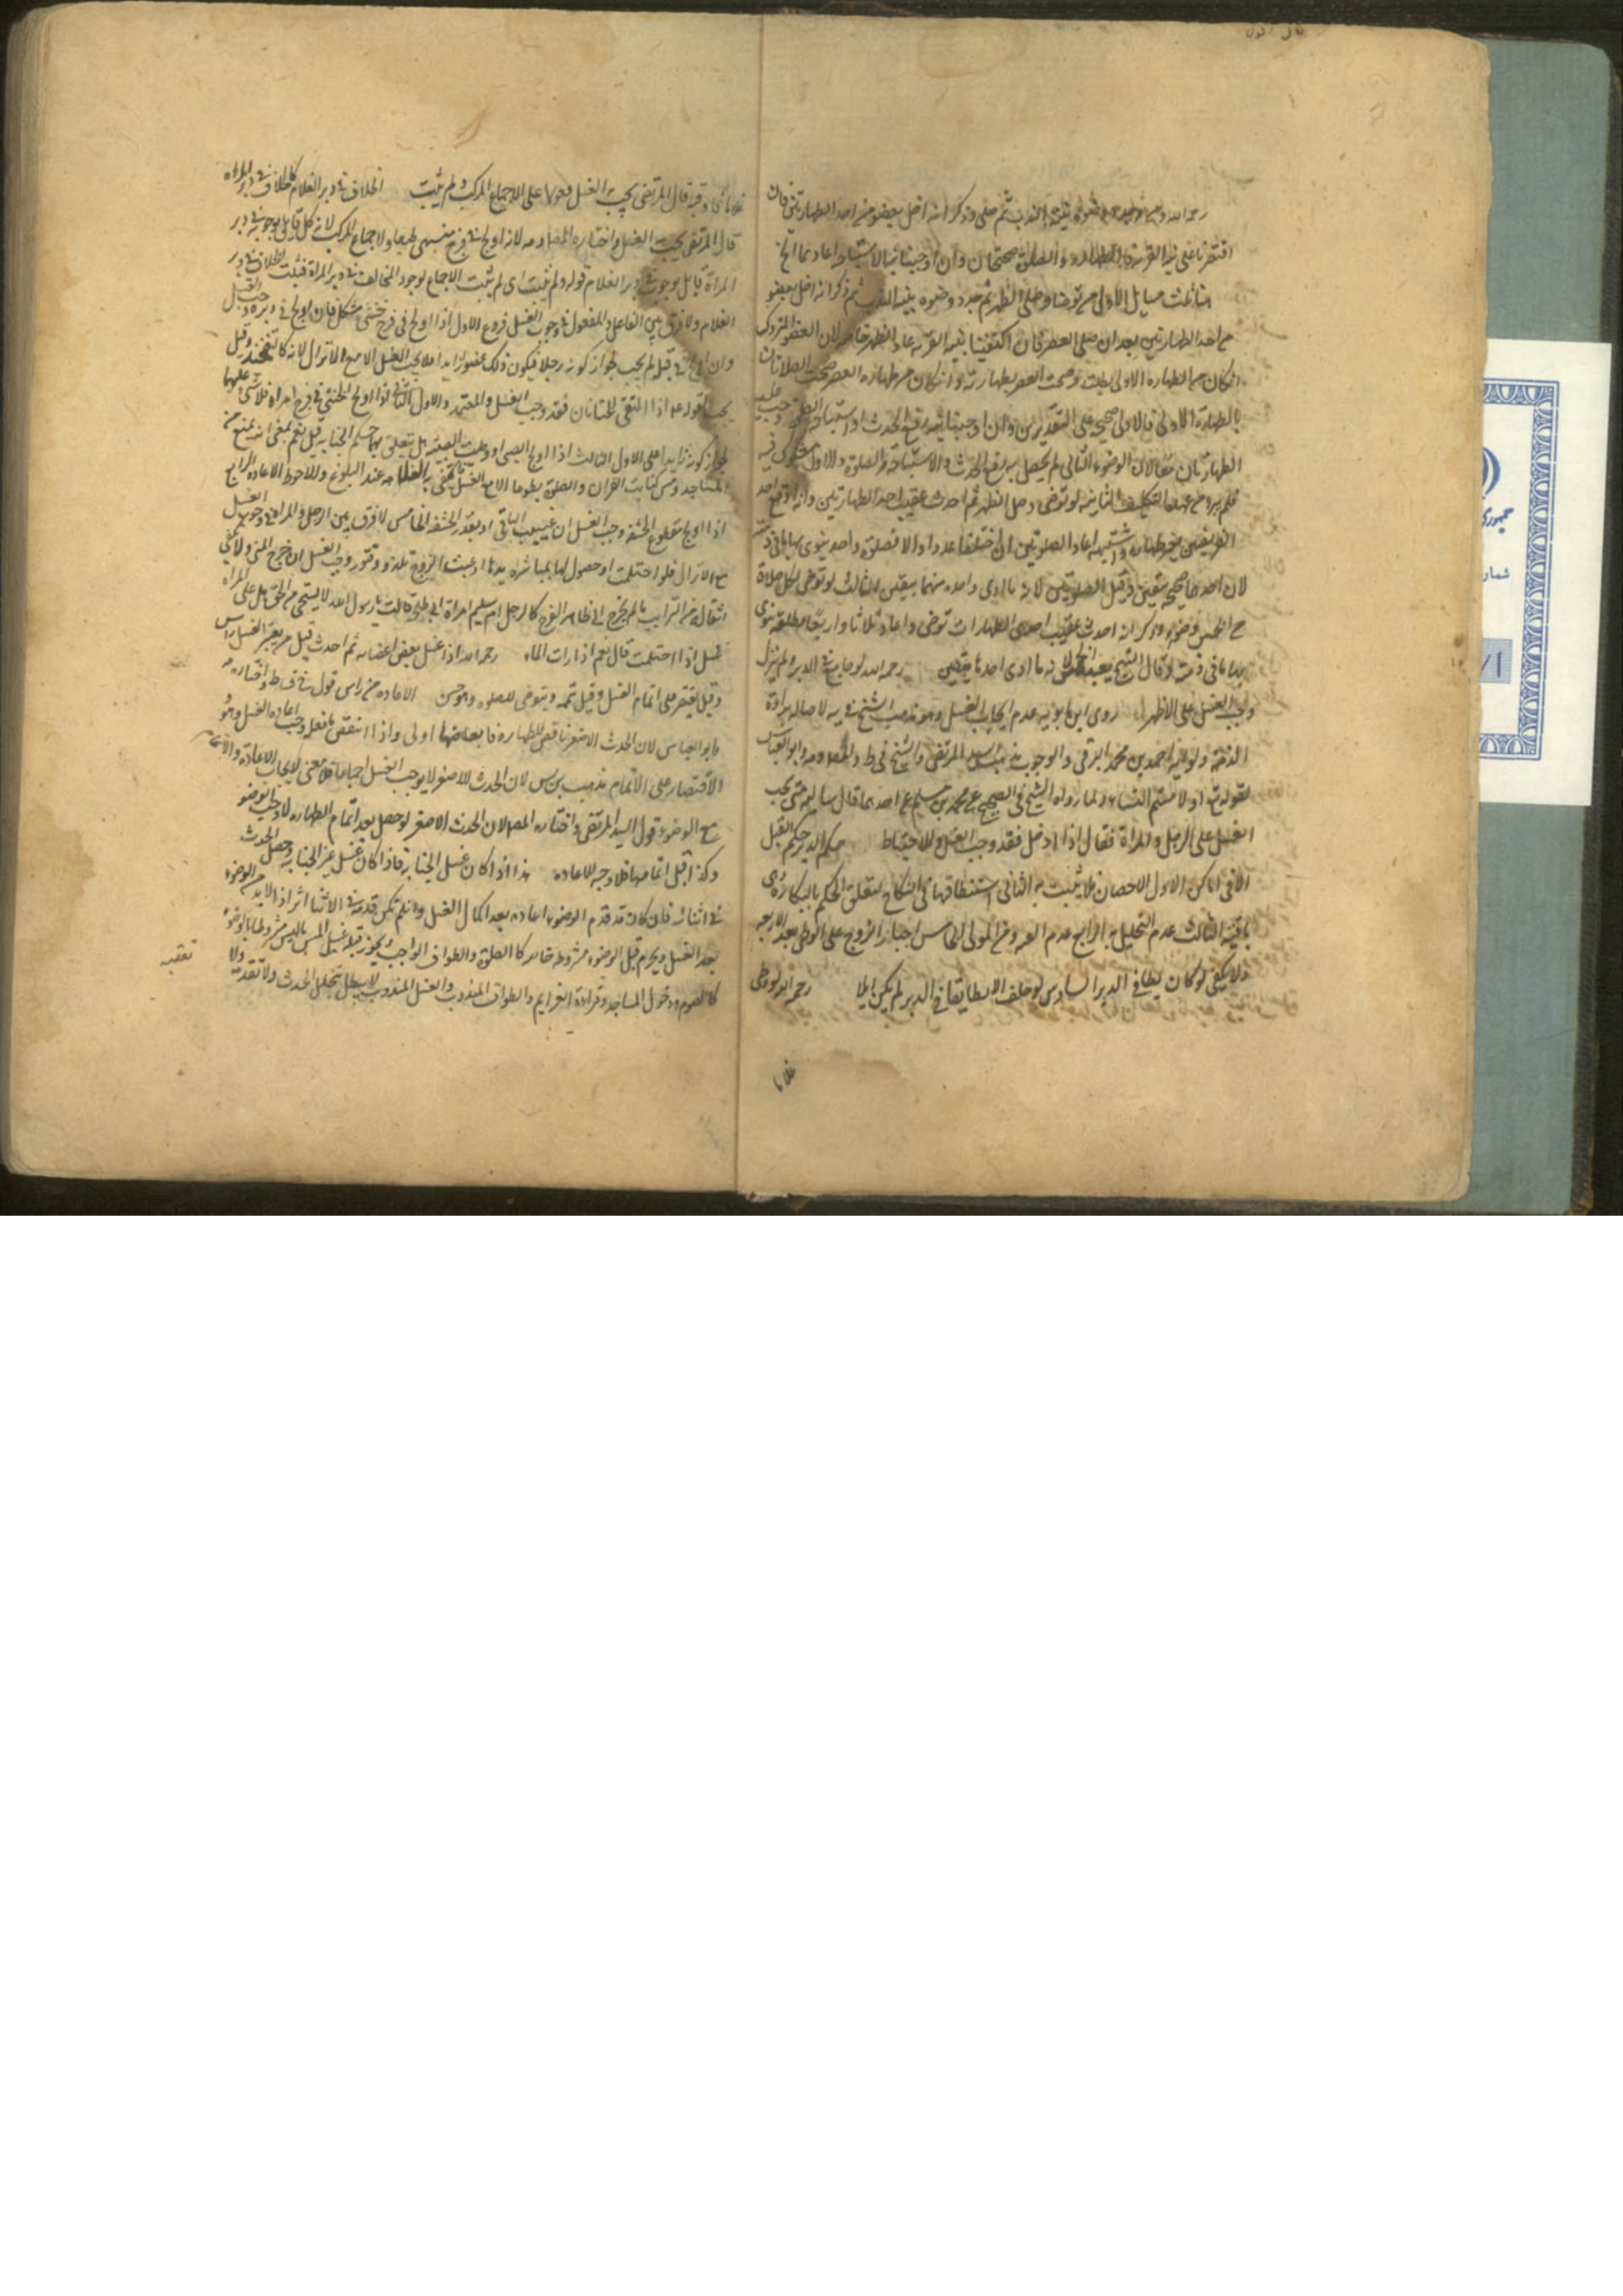 رحمه الله ولو جدد وضوءه بنية الندب ثم صلى وذكر انه اخل بعضو من احد الطهارتين فان
اقتصرنا على نية القربة فالطهارة والصلوة صحيحتان وان اوجبنا نية الاستباحة اعادهما الخ
هنا ثلث مسايل الاولى من توضأ وصلى الظهر ثم جدد وضوءه بنية الندب ثم ذكر انه اخل بعضو
من احد الطهارتين بعد ان صلى العصر فان اكتفينا بنية القربة اعاد الظهر خاصة لان العضو المتروك
ان كان من الطهارة الاولى بطلت وصحت العصر بطهارته وان كان من طهارة العصر صحت الصلاتان
بالطهارة الاولى فالاولى صحيح على التقديرين وان اوجبنا نية رفع الحدث او استباحة الصلوة وجب عليه
الطهارتان معا لان الوضوء الثانى لم يحصل به رفع الحدث والاستباحة والصلوة والاول مشكوك فيه
فلم يبرء من عهدة التكليف الثانية لو توضى وصلى الظهر ثم احدث عقيب احد الطهارتين وانه اوقع احد
الفريضتين بغير طهارة واشتبه اعاد الصلوتين ان اختلفا عددا والا فصلوة واحدة ينوى بها ما في ذمته
لان احدهما صحيحة بيقين وقيل الصلوتين لانه ما ادى واحدة منهما بيقين الثالث لو توضى لكل صلاة
من الخمس وضوء وذكر انه احدث عقيب احدى الطهارات توضى واعاد ثلاثا واربعا مطلقة ينوى
بها ما في ذمته وقال الشيخ يعيد الخمس لانه ما ادى احدها بيقين رحمه الله لو جامع في الدبر ولم ينزل
وجب الغسل على الاظهر روى ابن بابويه عدم ايجاب الغسل وهو مذهب الشيخ في يه لاصالة براءة
الذمة ولرواية احمد بن محمد البرقى والوجوب مذهب السيد المرتضى والشيخ في ط والمص ومه وابو العباس
لقوله تع او لامستم النساء ولما رواه الشيخ في الصحيح عن محمد بن مسلم عن احدهما قال سالته متى يجب
الغسل على الرجل والمراة فقال اذا ادخل فقد وجب الغسل وللاحتياط حكم الدبر حكم القبل
الا في اماكن الاول الاحصان فلا يثبت به الثانى استنطاقها في النكاح لتعلق الحكم بالبكارة وهي
باقية الثالث عدم التحليل به الرابع عدم الخروج من المولى الخامس اجبار الزوج على الوطى بعد الاربعة
ولا يكفى لو كان يطا في الدبر السادس لو حلف الا يطا يقا في الدبر لم يكن ايلا رحمه الله لو وطى
غلاما
غلاما فاوقبه قال المرتضى يجب الغسل معولا على الاجماع المركب ولم يثبت الخلاف في دبر الغلام كالخلاف في دبر المراة
قال المرتضى يجب الغسل واختاره المص ومه لانه اولج في فرج مشتهى طبعا ولاجماع المركب لانه كل قايل بوجوبه في دبر
المراة قايل بوجوبه في دبر الغلام قوله ولم يثبت اى لم يثبت الاجماع لوجود المخالف في دبر المراة فيثبت الخلاف في دبر
الغلام ولا فرق بين الفاعل والمفعول في وجوب الغسل فروع الاول اذا اولج في فرج خنثى مشكل فان اولج في دبره وجب الغسل
وان اولج في قبله لم يجب لجواز كونه رجلا فيكون ذلك عضوا زايدا فلا يجب الغسل الا مع الانزال لانه كالتفخيذ وقيل
يجب لقوله عه اذا التقى الختانان فقد وجب الغسل والمعتمد والاول الثانى اذا اولج الخنثى في فرج امراة فلا شى عليهما
لجواز كونه زايدا على الاول الثالث اذا اولج الصبى او وطيت الصبية هل يتعلق بهما حكم الجنابة قيل نعم بمعنى انه يمنع من
المساجد ومس كتابة القران والصلوة تطوعا الا مع الغسل عند البلوغ وللاحوط الاعادة الرابع
اذا اولج مقطوع الحشفة وجب الغسل ان غيب الباقى او بقدر الحشفة الخامس لا فرق بين الرجل والمراة في وجوب الغسل
مع الانزال فلو احتلمت او حصول لها بمباشرة يدها او عبث الزوج تلذذ وفتور وجب الغسل ان خرج المنى ولا يكفى
انتقاله من الترايب ما لم يخرج الى ظاهر الفرج كالرجل ام سليم امراة ابى طلحة قالت يا رسول الله لا يستحى من الحق هل على المراة
غسل اذا احتلمت قال نعم اذا رات الماء رحمه الله اذا غسل بعض اعضائه ثم احدث قيل يعيد الغسل من راس
وقيل يقتصر على اتمام الغسل وقيل يتمه ويتوضى للصلوة وهو حسن الاعادة من راس قول في ط واختاره مه
وابو العباس لان الحدث الاصغر ناقض للطهارة فابعاضها اولى واذا انتقض ما فعله وجب اعادة الغسل وهو
الاقتصار على الاتمام مذهب بن س لان الحدث الاصغر لا يوجب الغسل اجماعا فلا معنى لايجاب الاعادة والاتمام
مع الوضوء قول السيد المرتضى واختاره المص لان الحدث الاصغر لو حصل بعد اتمام الطهارة لاوجب الوضوء
وكذا قبل اتمامها فلا وجه للاعادة هذا اذا كان غسل الجنابة فاذا كان غسل غير الجنابة وحصل الحدث
في اثنائه فان كان قد قدم الوضوء اعاده بعد اكمال الغسل وان لم يكن قدمه في الاثنا اثر اذ لا بد من الوضوء
بعد الغسل ويحرم قبل الوضوء مشروطه خاصة كالصلوة والطواف الواجب ويجوز قبله غسل المس ما ليس مشروطا بالوضوء
كالصوم ودخول المساجد وقراءة العزايم والطواف المندوب والغسل المندوب لا يبطل بتخلل الحدث ولا تقدمه ولا
تعقبه